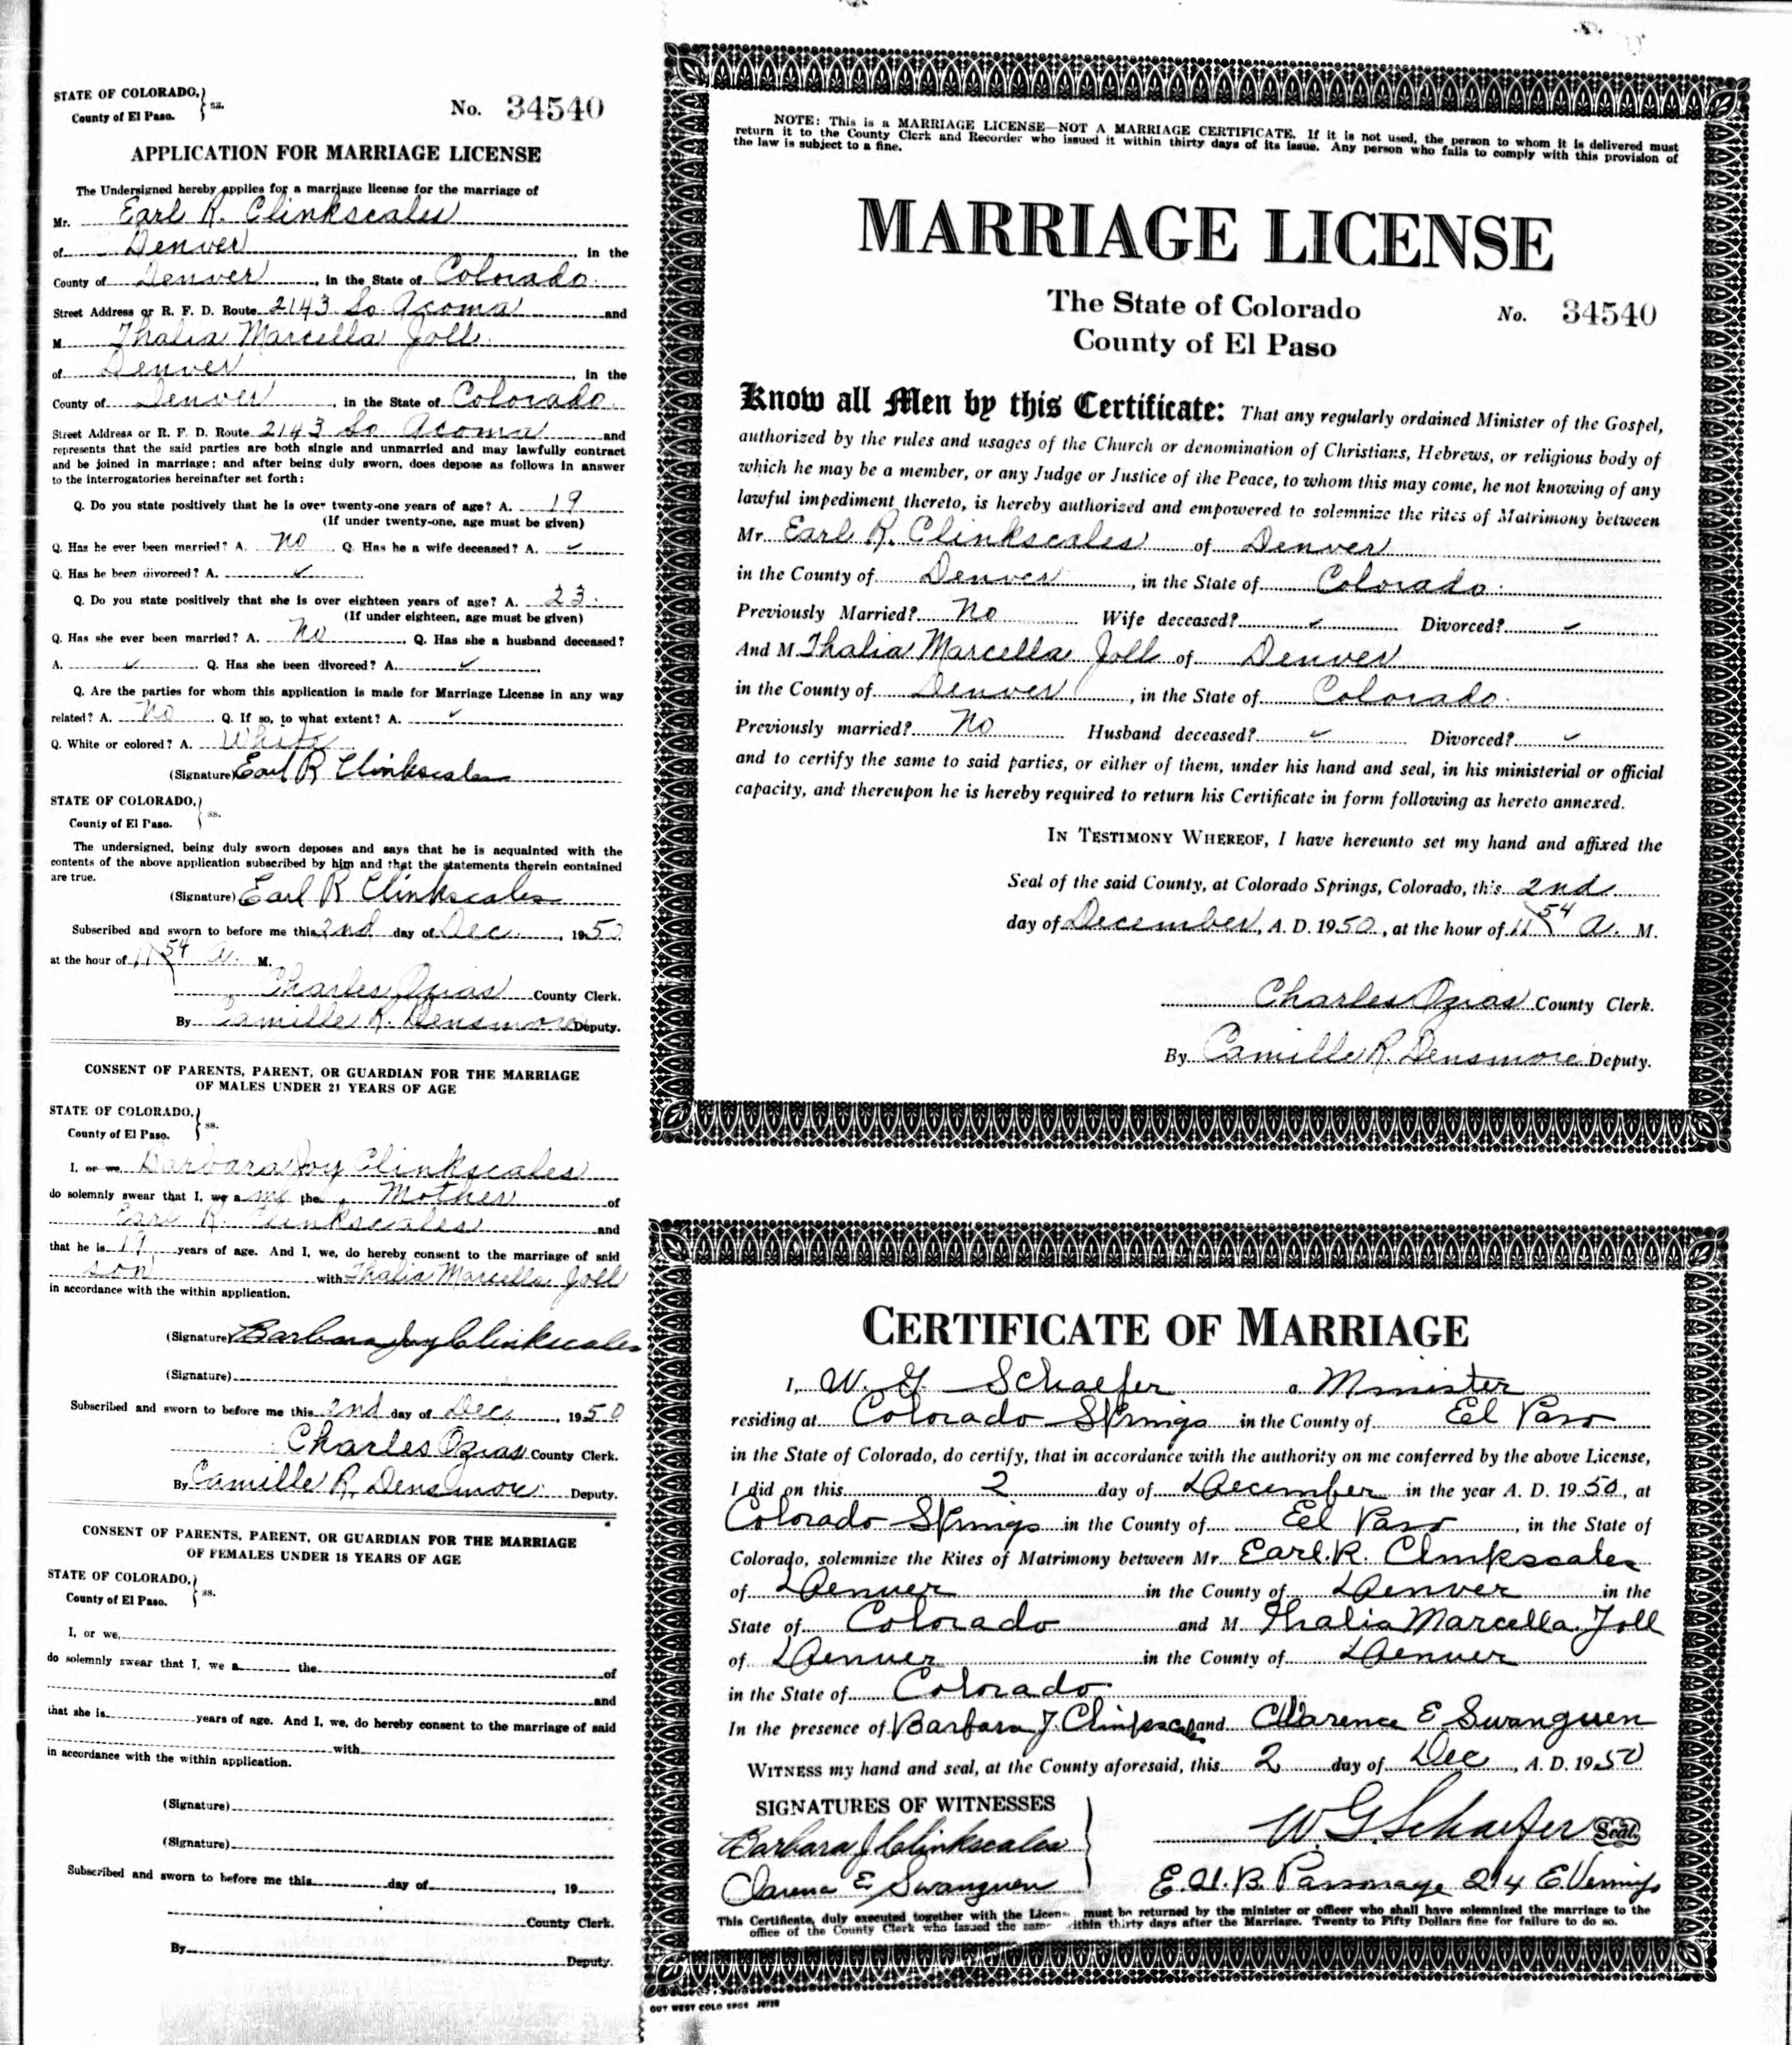 STATE OF COLORADO, } ss.
County of El Paso.
No. 34540
APPLICATION FOR MARRIAGE LICENSE
The Undersigned hereby applies for a marriage license for the marriage of
Mr. Earl R. Clinkscales
of Denver, in the
County of Denver, in the State of Colorado.
Street Address or R. F. D. Route 2143 So Acoma and
M Thalia Marcella Joll
of Denver, in the
County of Denver, in the State of Colorado.
Street Address or R. F. D. Route 2143 So Acoma and
represents that the said parties are both single and unmarried and may lawfully contract
and be joined in marriage; and after being duly sworn, does depose as follows in answer
to the interrogatories hereinafter set forth:
Q. Do you state positively that he is over twenty-one years of age? A. 19
(If under twenty-one, age must be given)
Q. Has he ever been married? A. No Q. Has he a wife deceased? A. ✓
Q. Has he been divorced? A. ✓
Q. Do you state positively that she is over eighteen years of age? A. 23.
(If under eighteen, age must be given)
Q. Has she ever been married? A. No Q. Has she a husband deceased?
A. ✓ Q. Has she been divorced? A. ✓
Q. Are the parties for whom this application is made for Marriage License in any way
related? A. No Q. If so, to what extent? A. ✓
Q. White or colored? A. White
(Signature) Earl R Clinkscales
STATE OF COLORADO, } ss.
County of El Paso.
The undersigned, being duly sworn deposes and says that he is acquainted with the
contents of the above application subscribed by him and that the statements therein contained
are true.
(Signature) Earl R Clinkscales
Subscribed and sworn to before me this 2nd day of Dec., 1950
at the hour of 11 54 A. M.
Charles Ozias County Clerk.
By Camille R. Densmore Deputy.
CONSENT OF PARENTS, PARENT, OR GUARDIAN FOR THE MARRIAGE
OF MALES UNDER 21 YEARS OF AGE
STATE OF COLORADO, } ss.
County of El Paso.
I, or we, Barbara Joy Clinkscales
do solemnly swear that I, we a my the Mother of
Earl R. Clinkscales and
that he is 19 years of age. And I, we, do hereby consent to the marriage of said
son with Thalia Marcella Joll
in accordance with the within application.
(Signature) Barbara Joy Clinkscales
(Signature)
Subscribed and sworn to before me this 2nd day of Dec., 1950
Charles Ozias County Clerk.
By Camille R. Densmore Deputy.
CONSENT OF PARENTS, PARENT, OR GUARDIAN FOR THE MARRIAGE
OF FEMALES UNDER 18 YEARS OF AGE
STATE OF COLORADO, } ss.
County of El Paso.
I, or we,
do solemnly swear that I, we a the of
and
that she is years of age. And I, we, do hereby consent to the marriage of said
with
in accordance with the within application.
(Signature)
(Signature)
Subscribed and sworn to before me this day of , 19
County Clerk.
By Deputy.
NOTE: This is a MARRIAGE LICENSE—NOT A MARRIAGE CERTIFICATE. If it is not used, the person to whom it is delivered must
return it to the County Clerk and Recorder who issued it within thirty days of its issue. Any person who fails to comply with this provision of
the law is subject to a fine.
MARRIAGE LICENSE
The State of Colorado No. 34540
County of El Paso
Know all Men by this Certificate: That any regularly ordained Minister of the Gospel,
authorized by the rules and usages of the Church or denomination of Christians, Hebrews, or religious body of
which he may be a member, or any Judge or Justice of the Peace, to whom this may come, he not knowing of any
lawful impediment thereto, is hereby authorized and empowered to solemnize the rites of Matrimony between
Mr. Earl R. Clinkscales of Denver
in the County of Denver, in the State of Colorado.
Previously Married? No Wife deceased? ✓ Divorced? ✓
And M Thalia Marcella Joll of Denver
in the County of Denver, in the State of Colorado.
Previously married? No Husband deceased? ✓ Divorced? ✓
and to certify the same to said parties, or either of them, under his hand and seal, in his ministerial or official
capacity, and thereupon he is hereby required to return his Certificate in form following as hereto annexed.
IN TESTIMONY WHEREOF, I have hereunto set my hand and affixed the
Seal of the said County, at Colorado Springs, Colorado, this 2nd
day of December, A. D. 1950, at the hour of 11 54 A. M.
Charles Ozias County Clerk.
By Camille R. Densmore Deputy.
CERTIFICATE OF MARRIAGE
I, W. G. Schaefer a Minister
residing at Colorado Springs in the County of El Paso
in the State of Colorado, do certify, that in accordance with the authority on me conferred by the above License,
I did on this 2 day of December in the year A. D. 1950, at
Colorado Springs in the County of El Paso, in the State of
Colorado, solemnize the Rites of Matrimony between Mr. Earl. R. Clinkscales
of Denver in the County of Denver in the
State of Colorado and M. Thalia Marcella Joll
of Denver in the County of Denver
in the State of Colorado
In the presence of Barbara J. Clinkscales and Clarence E Swanguen
WITNESS my hand and seal, at the County aforesaid, this 2 day of Dec, A. D. 1950
SIGNATURES OF WITNESSES
Barbara J Clinkscales
Clarence E Swanguen
W. G. Schaefer Seal
E. U. B. Parsonage 214 E.
This Certificate, duly executed together with the License must be returned by the minister or officer who shall have solemnized the marriage to the
office of the County Clerk who issued the same within thirty days after the Marriage. Twenty to Fifty Dollars fine for failure to do so.
OUT WEST COLO SPGS